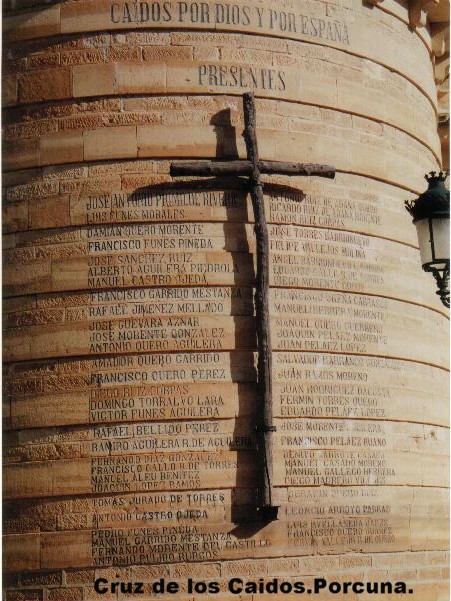 CAÍDOS POR DIOS Y POR ESPAÑA
- PRESENTES
JOSE ANTONIO PRIMO DE RIVERA
LUIS FUNES MORALES
DAMIAN QUERO MORENTE
FRANCISCO FUNES PINEDA
JOSE SANCHEZ RUIZ
ALBERTO AGUILERA PIEDROLA
MANUEL CASTRO OJEDA
FRANCISCO GARRIDO MESTANZA
RAFAEL JIMENEZ MELLADO
JOSE GUEVARA AZNAR
JOSE MORENTE GONZALEZ
ANTONIO QUERO AGUILERA
AMADOR QUERO GARRIDO
FRANCISCO QUERO PEREZ
DIEGO RUIZ
DOMINGO TORRALVO LARA
VICTOR FUNES AGUILERA
RAFAEL BELLIDO PEREZ
RAMIRO AGUILERA R. DE AGUILERA
FERNANDO DIAZ GONZALEZ
FRANCISCO GALLO R DE TORRES
MANUEL BENITEZ
JOAQUIN RAMOS
TOMAS JURADO DE TORRES
ANTONIO CASTRO OJEDA
PEDRO FUNES PINEDA
MANUEL GARRIDO MESTANZA
FERNANDO MORENTE DEL CASTILLO
ANTONIO BURGOS
QUERO
RAMON
JOSE TORRES BARRIONUEVO
FELIPE CALLEJOS MOLINA
ANGEL
EDUARDO
DIEGO MORENTE
FRANCISCO
MANUEL
MANUEL QUERO GUERRERO
JOAQUIN PELAEZ MORENTE
JUAN PELAEZ LOPEZ
SALVADOR BARRANCO GONZALEZ
JUAN RAMOS MORENO
JUAN RODRIGUEZ DACOSTA
FERMIN TORRES QUERO
EDUARDO PELAEZ LOPEZ
JOSE MORENTE
FRANCISCO PELAEZ RUANO
BENITO
MANUEL CASADO MORENO
MANUEL GALLEGO HERRERA
DIEGO
QUERO RUIZ
LEONCIO ARROYO
LUIS
FRANCISCO QUERO
Cruz de los Caidos.Porcuna.